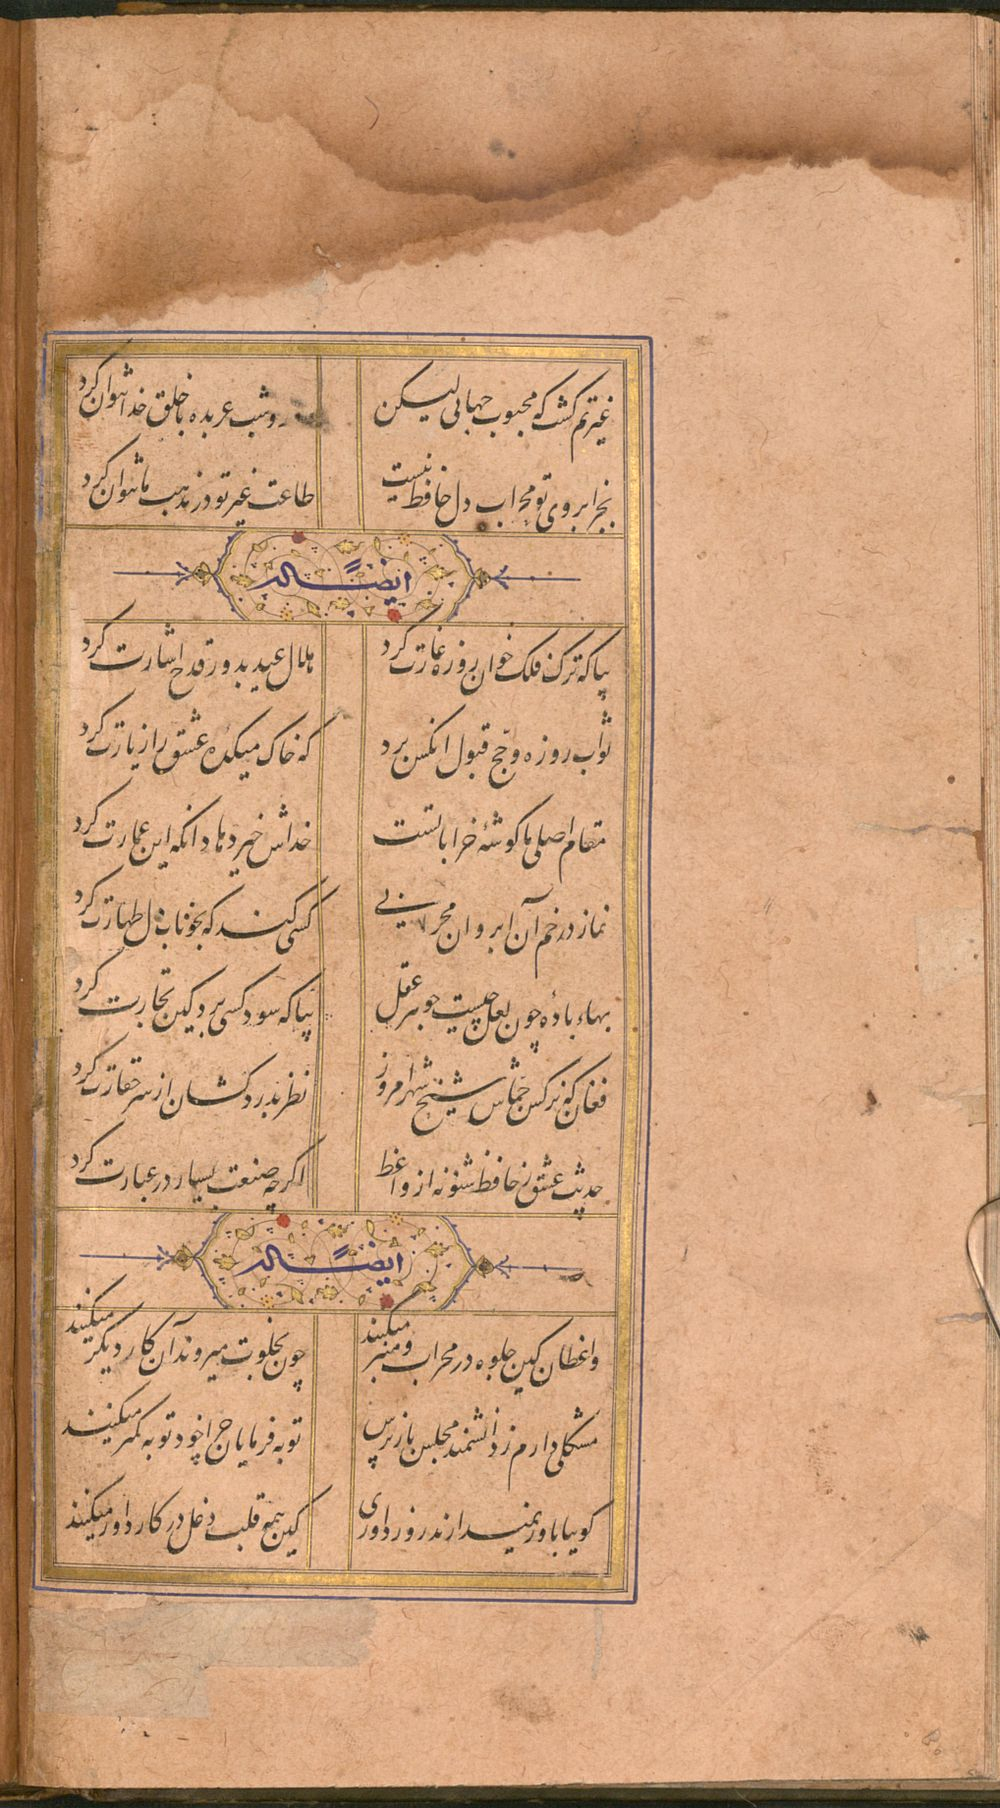 غیرتم کشت که محبوب جهانی لیکن
روز و شب عربده با خلق خدا نتوان کرد
بجز ابروی تو محراب دل حافظ نیست
طاعت غیر تو در مذهب ما نتوان کرد
ایضاً له
بیا که ترک فلک خوان روزه غارت کرد
هلال عید بدور قدح اشارت کرد
ثواب روزه و حج قبول انکس برد
که خاک میکدهٔ عشق را زیارت کرد
مقام اصلی ما گوشهٔ خراباتست
خداش خیر دهاد انکه این عمارت کرد
نماز در خم آن ابروان محرابی
کسی کند که بخوناب دل طهارت کرد
بهاء بادهٔ چون لعل چیست جوهر عقل
بیا که سود کسی برد کین تجارت کرد
فغان که نرگس جماش شیخ شهر امروز
نظر بدردکشان از سر حقارت کرد
حدیث عشق ز حافظ شنو نه از واعظ
اگرچه صنعت بسیار در عبارت کرد
ایضاً له
واعظان کین جلوه در محراب و منبر میکنند
چون بخلوت میروند آن کار دیگر میکنند
مشکلی دارم ز دانشمند مجلس بازپرس
توبه فرمایان چرا خود توبه کمتر میکنند
گوییا باور نمیدارند روز داوری
کین همه قلب و دغل در کار داور میکنند